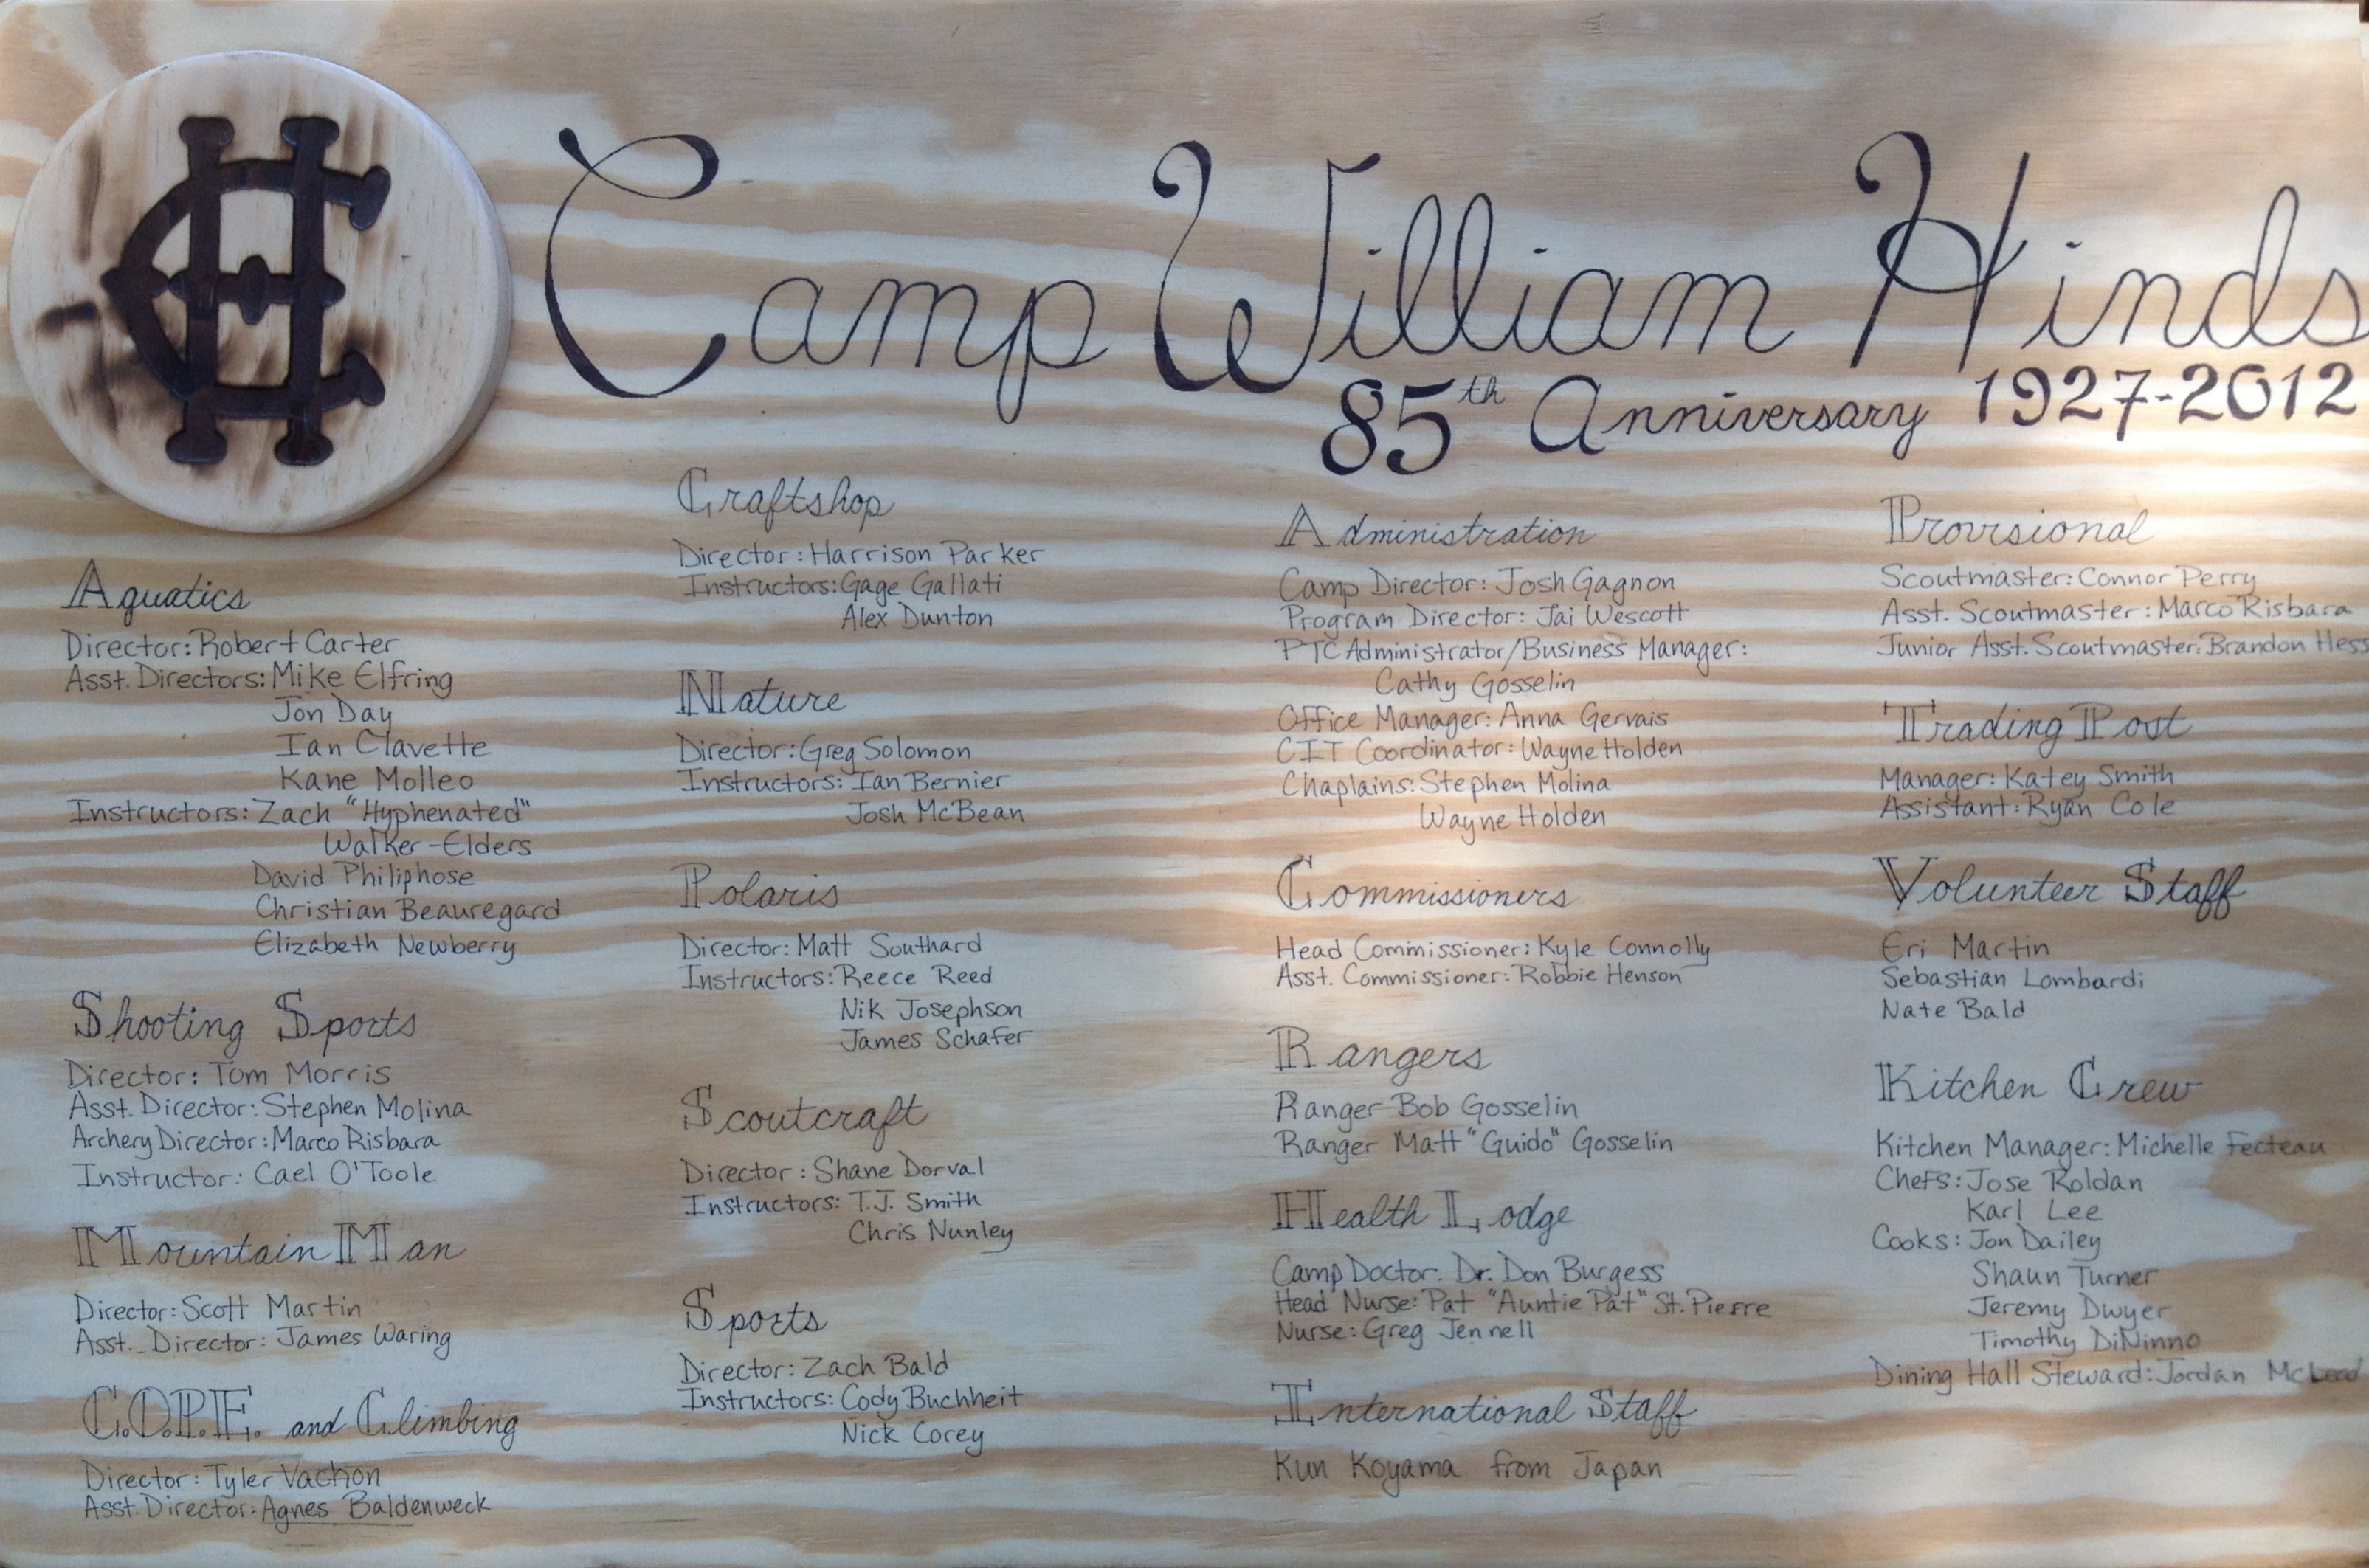 Camp William Hinds
85th Anniversary 1927-2012
Aquatics
Director: Robert Carter
Asst. Directors: Mike Elfring
Jon Day
Ian Clavette
Kane Molleo
Instructors: Zach "Hyphenated"
Walker-Elders
David Philiphose
Christian Beauregard
Elizabeth Newberry
Shooting Sports
Director: Tom Morris
Asst. Director: Stephen Molina
Archery Director: Marco Risbara
Instructor: Cael O'Toole
Mountain Man
Director: Scott Martin
Asst. Director: James Waring
C.O.P.E. and Climbing
Director: Tyler Vachon
Asst. Director: Agnes Baldenweck
Craftshop
Director: Harrison Parker
Instructors: Gage Gallati
Alex Dunton
Nature
Director: Greg Solomon
Instructors: Ian Bernier
Josh McBean
Polaris
Director: Matt Southard
Instructors: Reece Reed
Nik Josephson
James Schafer
Scoutcraft
Director: Shane Dorval
Instructors: T.J. Smith
Chris Nunley
Sports
Director: Zach Bald
Instructors: Cody Buchheit
Nick Corey
Administration
Camp Director: Josh Gagnon
Program Director: Jai Wescott
PTC Administrator/Business Manager:
Cathy Gosselin
Office Manager: Anna Gervais
CIT Coordinator: Wayne Holden
Chaplains: Stephen Molina
Wayne Holden
Commissioners
Head Commissioner: Kyle Connolly
Asst. Commissioner: Robbie Henson
Rangers
Ranger Bob Gosselin
Ranger Matt "Guido" Gosselin
Health Lodge
Camp Doctor: Dr. Don Burgess
Head Nurse: Pat "Auntie Pat" St. Pierre
Nurse: Greg Jennell
International Staff
Kun Koyama from Japan
Provisional
Scoutmaster: Connor Perry
Asst. Scoutmaster: Marco Risbara
Junior Asst. Scoutmaster: Brandon Hess
Trading Post
Manager: Katey Smith
Assistant: Ryan Cole
Volunteer Staff
Eri Martin
Sebastian Lombardi
Nate Bald
Kitchen Crew
Kitchen Manager: Michelle Fecteau
Chefs: Jose Roldan
Karl Lee
Cooks: Jon Dailey
Shaun Turner
Jeremy Dwyer
Timothy DiNinno
Dining Hall Steward: Jordan McLeod